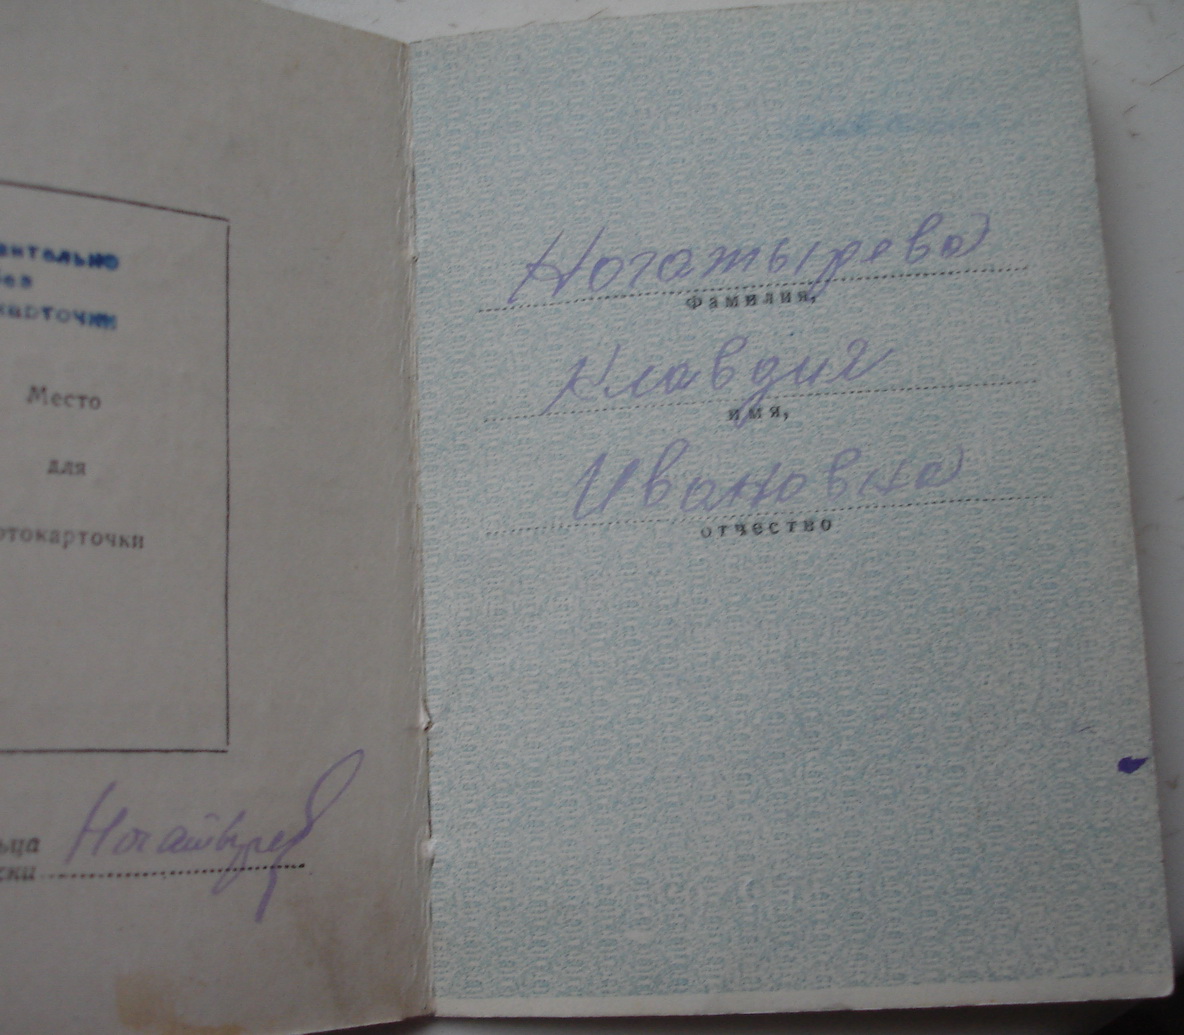 антольно
без
карточки
Место
для
отокарточки
ьца
ски
Ногатырев
Ногатырева
Фамилия,
Клавдия
имя,
Ивановна
отчество